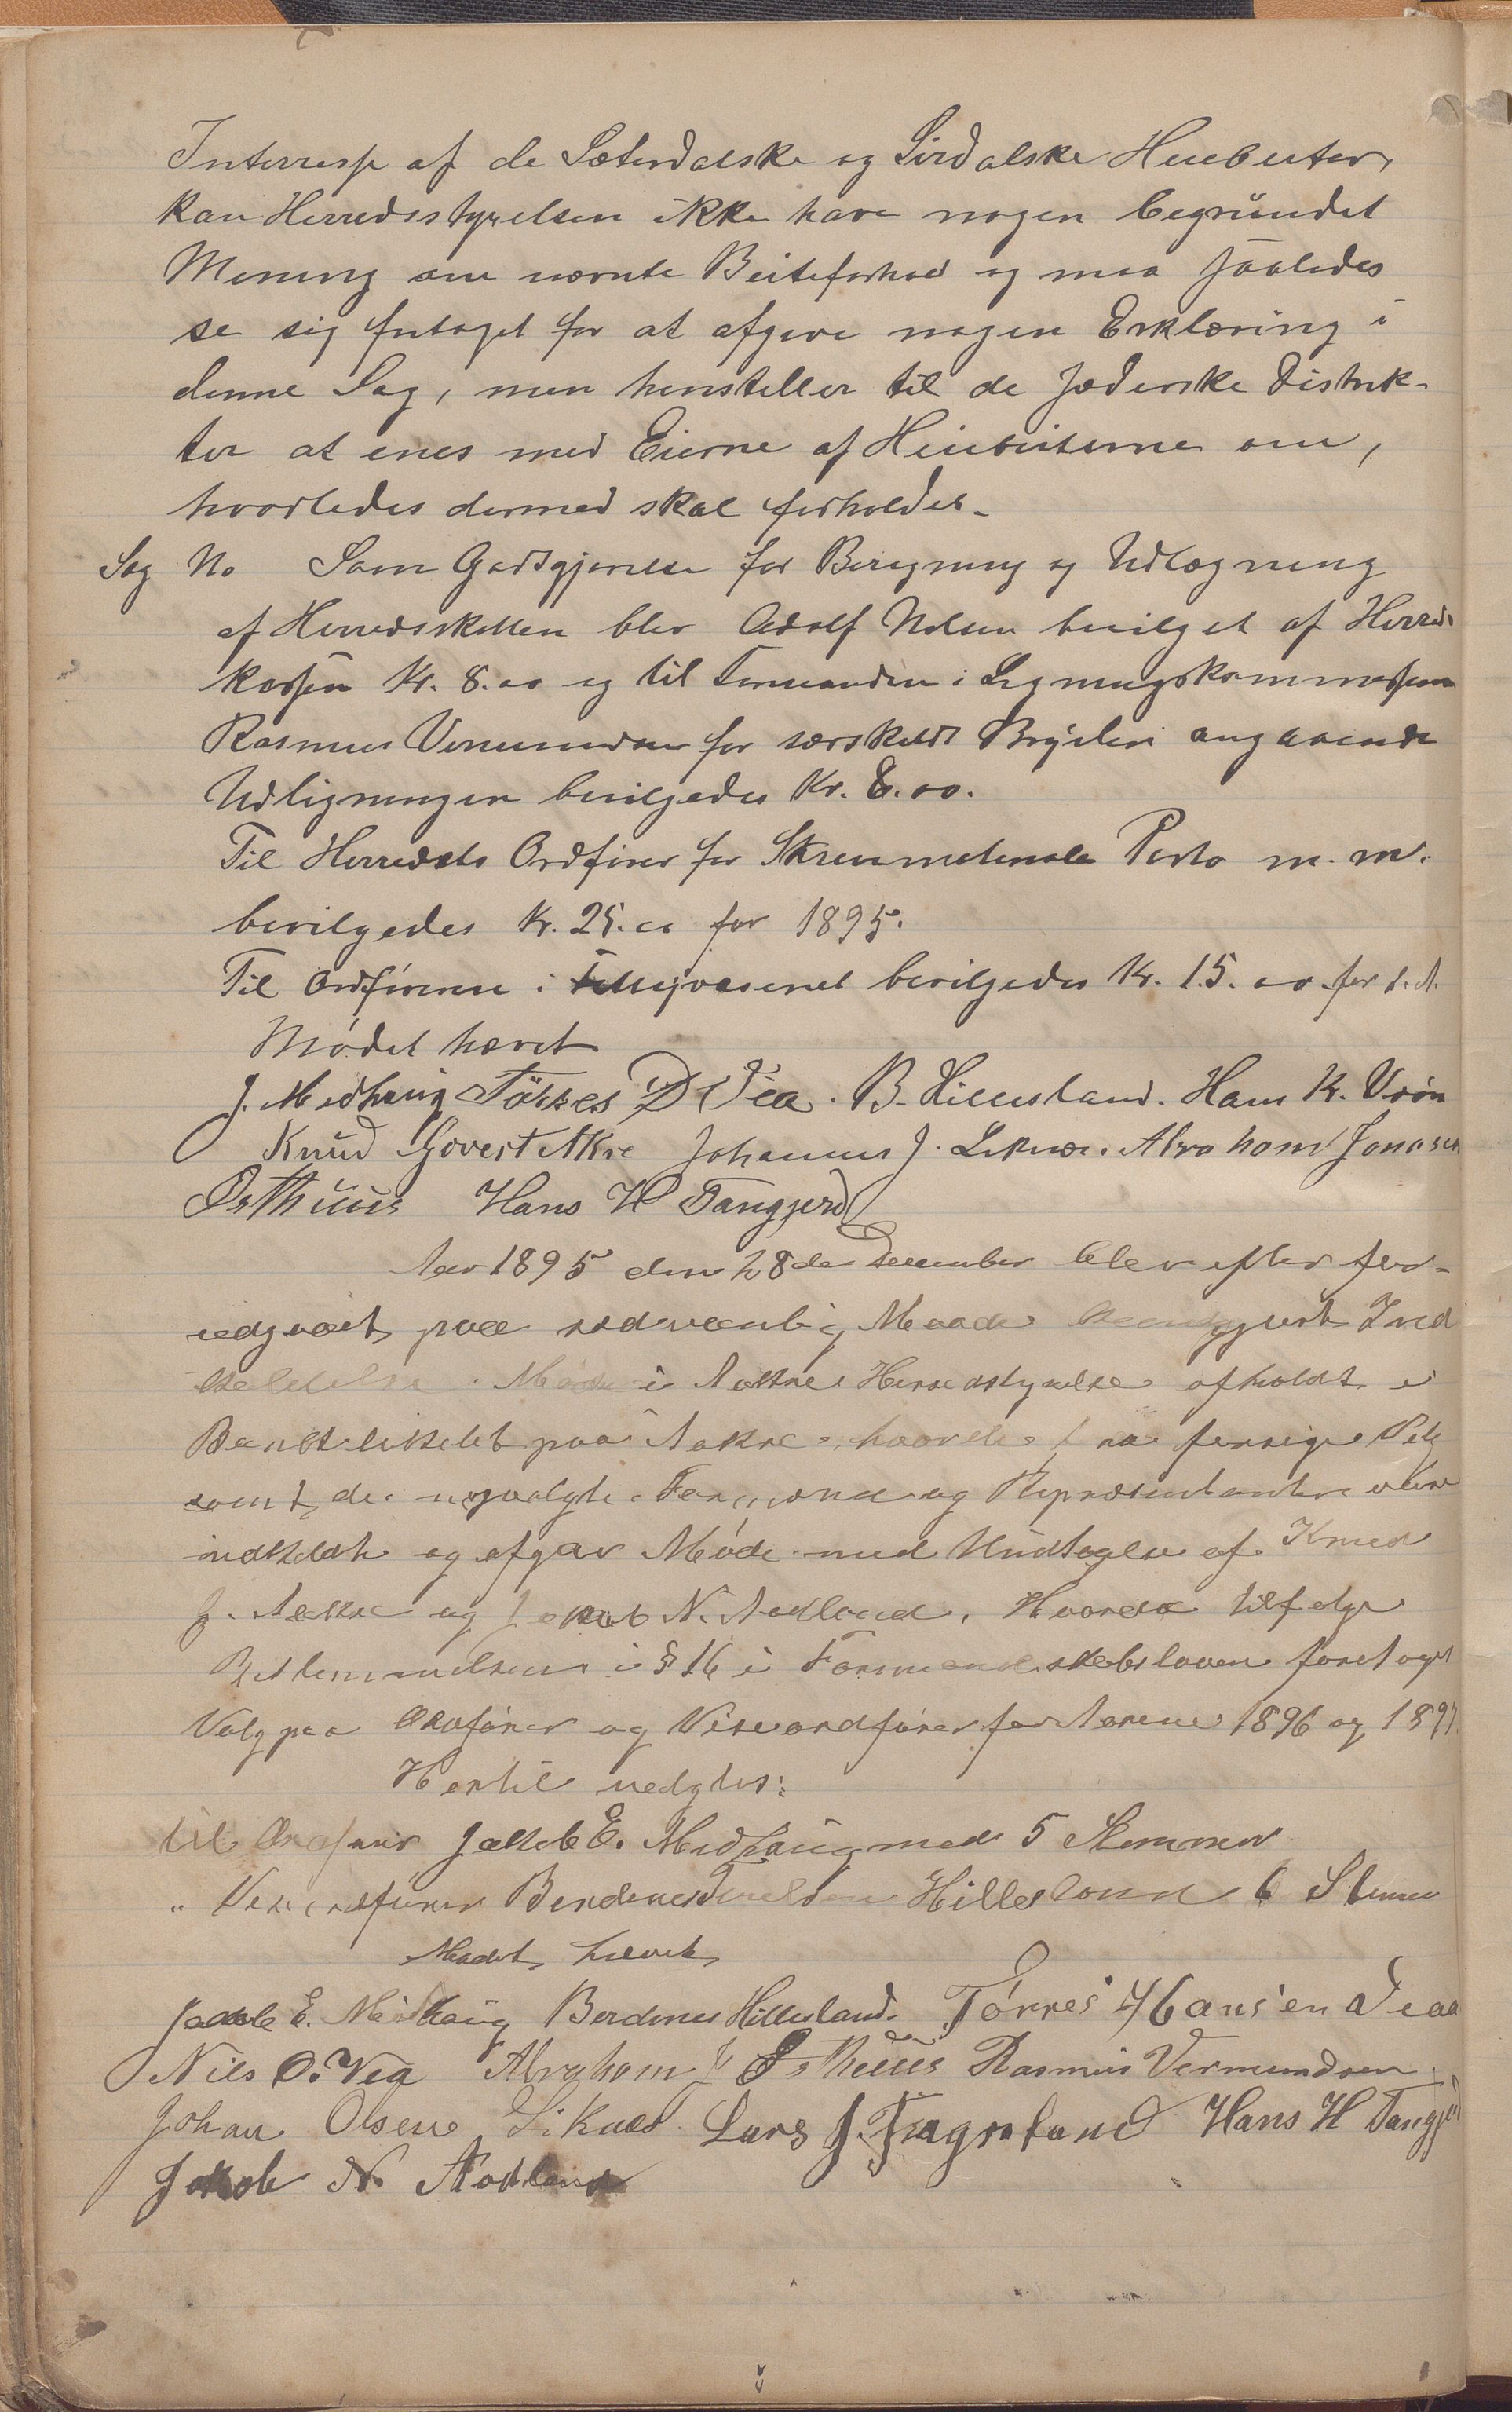 Interresse af de Sæterdalske og Sirdalske Heiebeiter,
kan Herredsstyrelsen ikke have nogen begründet
Mening om nævnte Beiteforhold og maa saaledes
se sig fritaget for at afgive nogen Erklæring i
denne Sag, men henstiller til de Jæderske Distrik-
ter at enes med Eierne af Heiebeiterne om,
hvorledes dermed skal forholdes.
Sag No Som Godtgjørelse for Beregning og Udlægning
af Herredsskatten blev Adolf Nilsen bevilget af Herreds
kassen Kr. 8.00 og til Formanden i Ligningskommissionen
Rasmus Vermundsen for særskildt Bryderi angaaende
Udligningen bevilgedes Kr. 8.00.
Til Herredets Ordfører for Skrivmateriale Porto m.m.
bevilgedes Kr. 25.00 for 1895.
Til Ordføreren i Fattigvæsenet bevilgedes Kr. 15.00 for d.A.
Mødet hævet
J. Midhaüg Törres D Vea. B. Hillesland. Hans K. Vrön
Knüd Govert Akre Johannes J. Liknæs. Abraham Jonasen
Østhüus Hans H Tangjerd
Aar 1895 den 28de December blev efter for-
udgaaet paa sædvanlig Maade bekjendtgjort Ind
kaldelse Møde i Aakre Herredstyrelse afholdt i
Banklokalet paa Aakre, hvorda fra forrige Valg
samt de nyvalgte Formænd og Repræsentantere vare
indkaldt og afgav Møde med Undtagelse af Knud
G. Aakre og Jakob N. Aadland. Hvorda tilfølge
Bestemmelsen i § 16 i Formandskabsloven foretoges
Valg paa Ordfører og Viseordfører for Aarene 1896 og 1897.
Hertil valgtes:
til Ordfører Jakob E. Midhaüg med 5 Stemmer
" Viseordfører Berdines Hillesland 6 Stemmer
Mødet hævet
Jakob E. Midhaüg Berdines Hillesland. Törres Hansen Vea
Nils O. Vea Abraham J Østhüus Rasmus Vermundsen
Johan Olsen Liknæs Lars J. Fagerland Hans H Tangjerd
Jakob N. Aadland